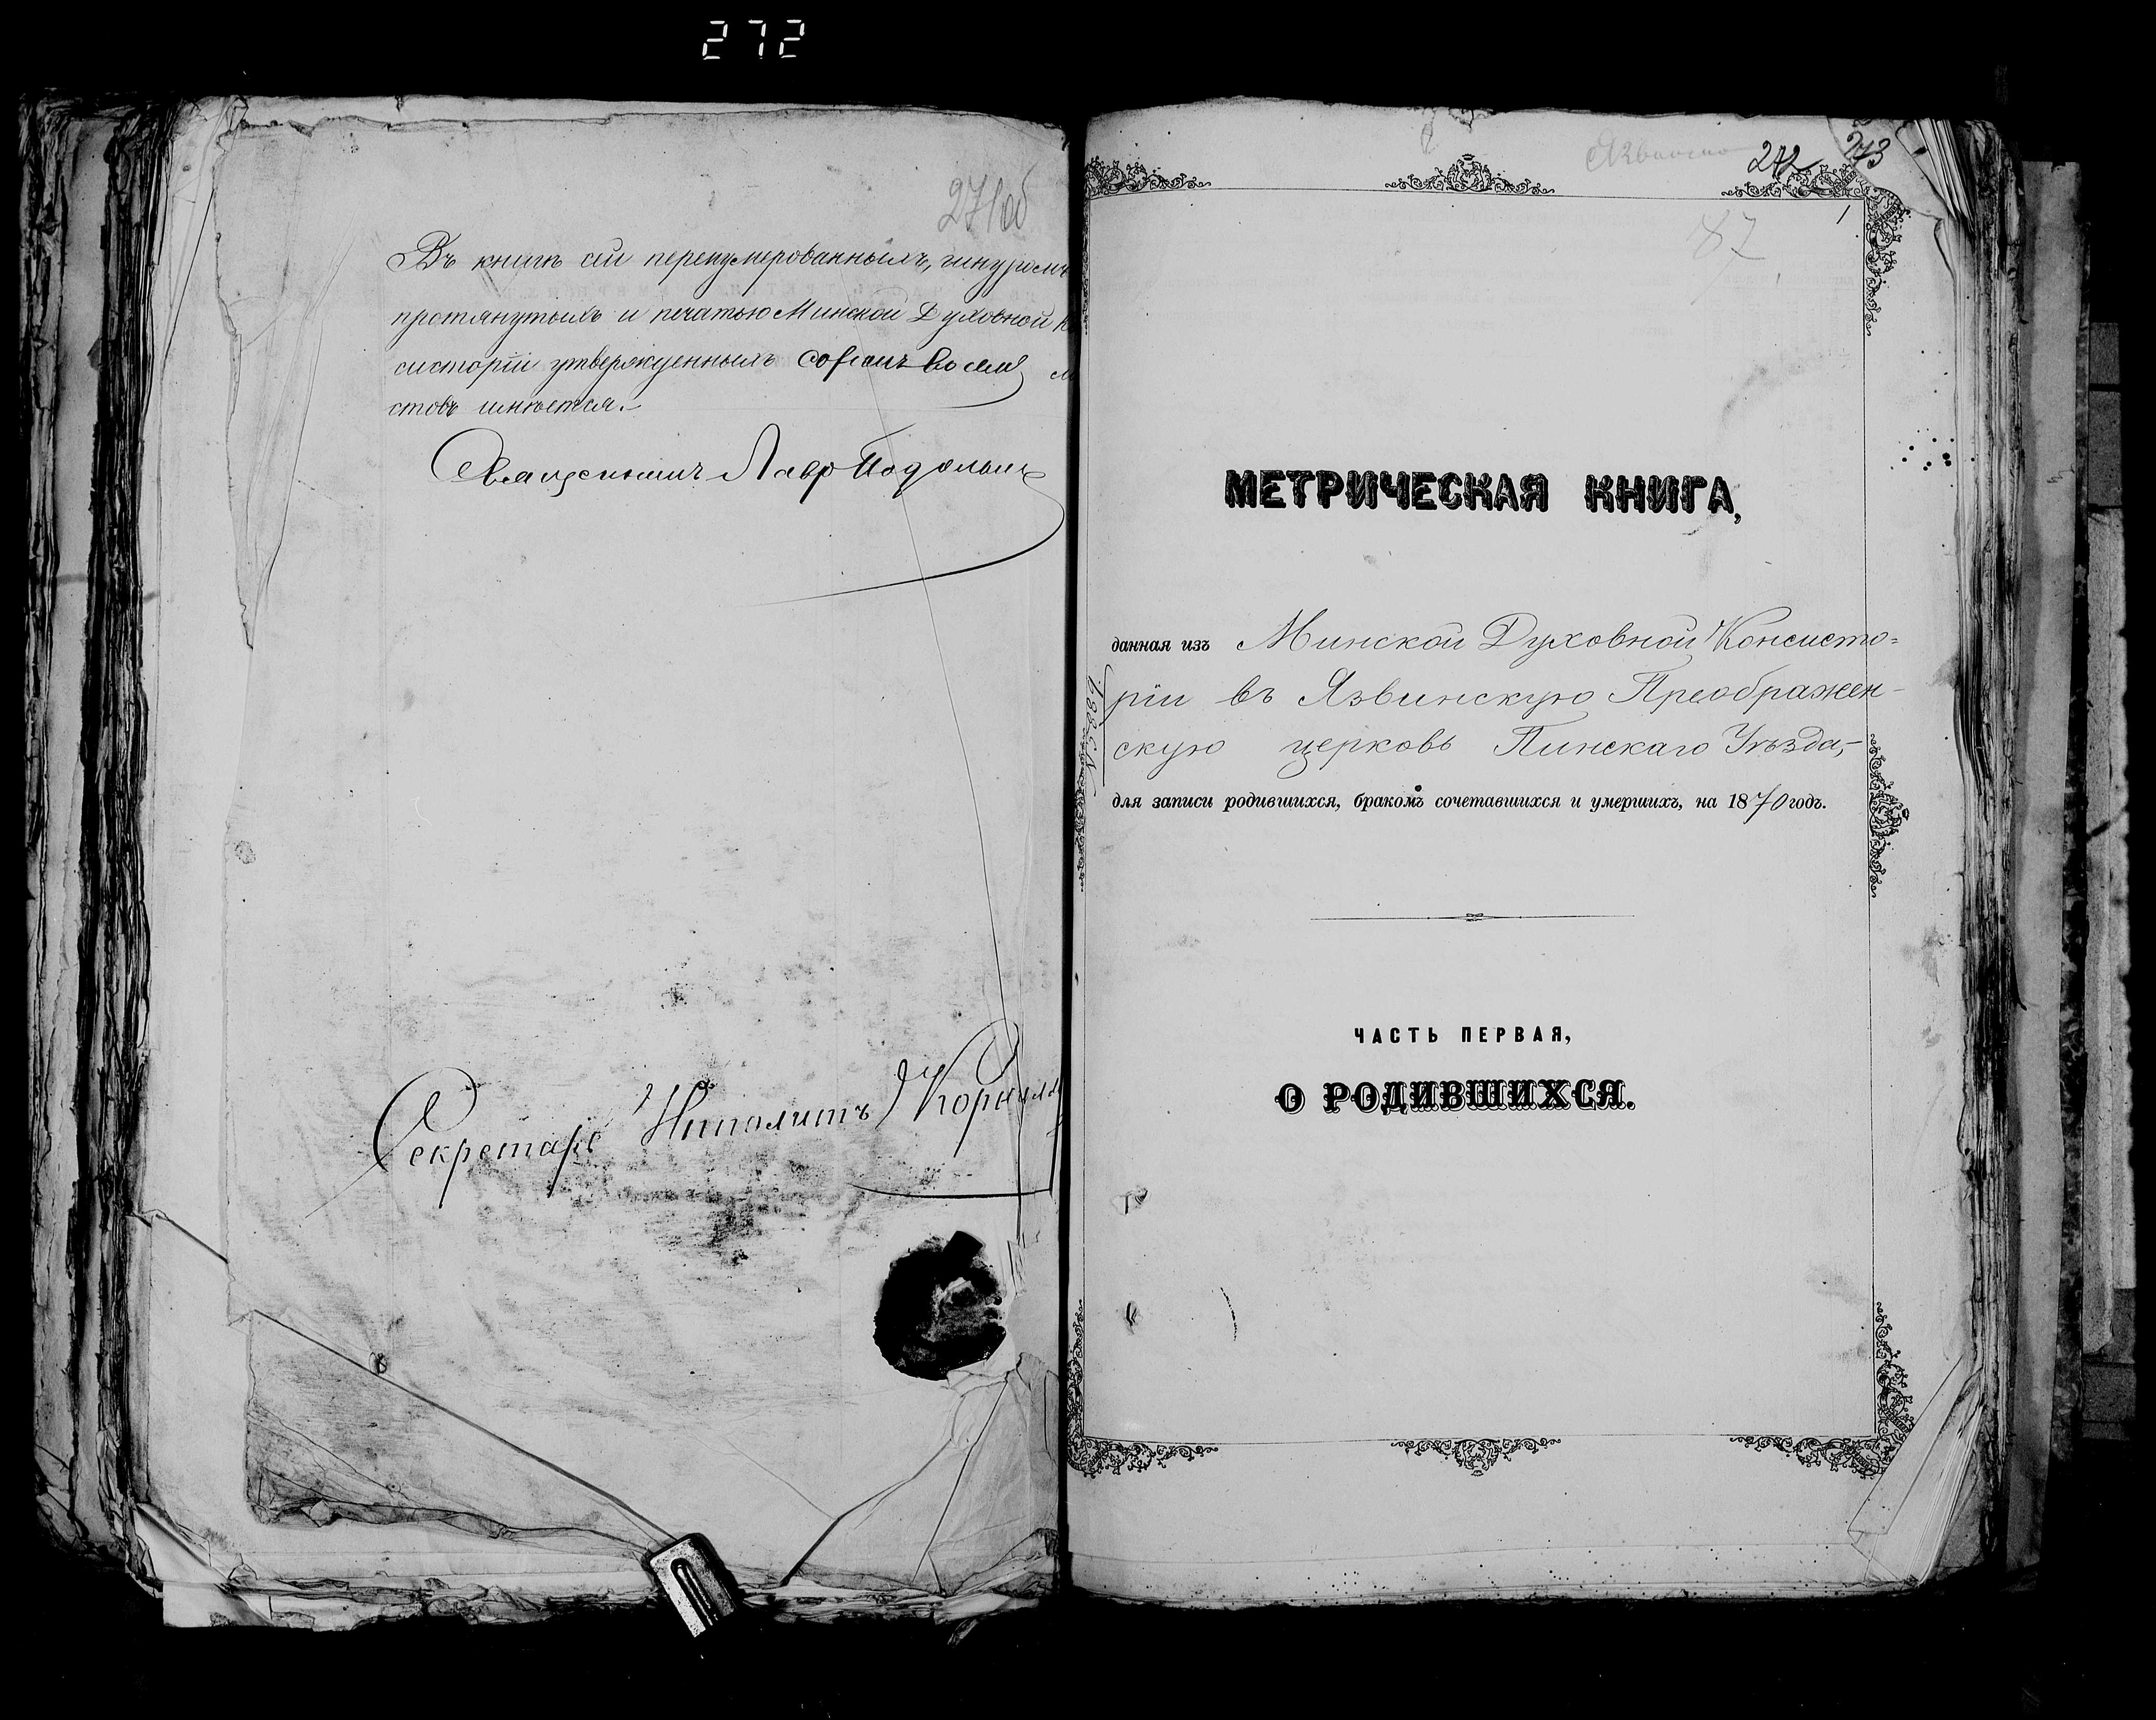 272
271об
Въ книгѣ сей перенумерованныхъ, шнуромъ
протянутыхъ и печатью Минской Духовной
систоріи утвержденныхъ сорокъ восемь
стовъ имѣется.
Священникъ Лавръ
Секретарь Ипполитъ
272 273
1
87
МЕТРИЧЕСКАЯ КНИГА,
данная изъ Минской Духовной Консисто-
ріи въ Язвинскую Преображен-
скую церковь Пинскаго Уѣзда,
для записи родившихся, бракомъ сочетавшихся и умершихъ, на 1870 годъ.
ЧАСТЬ ПЕРВАЯ,
О РОДИВШИХСЯ.